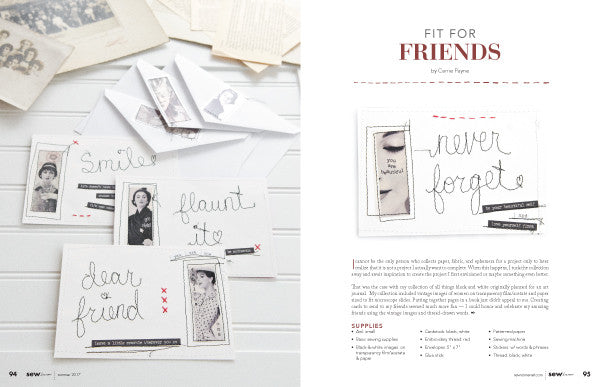 smile
flaunt
it
dear
friend
leave a little sparkle wherever you go
94
sew
summer 2017
FIT FOR
FRIENDS
by Carrie Payne
never
forget
you
are
beautiful
be your beautiful self
love yourself first
I cannot be the only person who collects paper, fabric, and ephemera for a project only to later
realize that it is not a project I actually want to complete. When this happens, I pack the collection
away and await inspiration to create the project I first envisioned or maybe something even better.
That was the case with my collection of all things black and white originally planned for an art
journal. My collection included vintage images of women on transparency film/acetate and paper
sized to fit microscope slides. Putting together pages in a book just didn't appeal to me. Creating
cards to send to my friends seemed much more fun — I could honor and celebrate my amazing
friends using the vintage images and thread-drawn words.
SUPPLIES
• Awl: small
• Basic sewing supplies
• Black-&-white images: on
transparency film/acetate
& paper
• Cardstock: black, white
• Embroidery thread: red
• Envelopes: 5" x 7"
• Glue stick
• Patterned paper
• Sewing machine
• Stickers: w/words & phrases
• Thread: black, white
sew
95